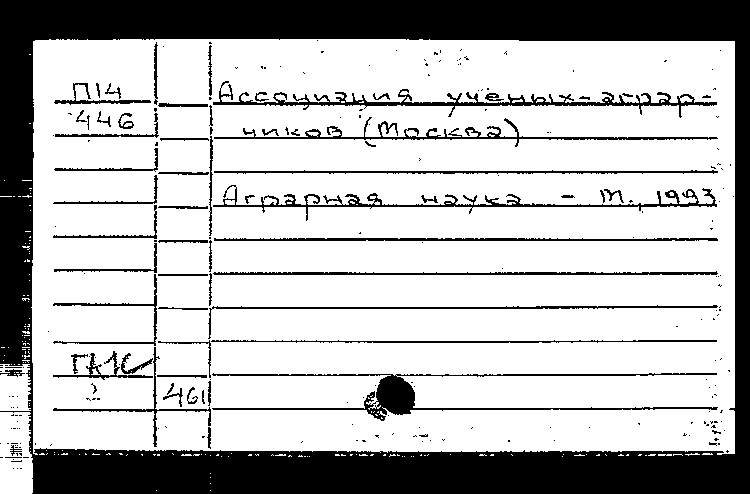 П14
446
Ассоциация ученых-аграр-
ников (Москва)
Аграрная наука - М., 1993
ГАК
461